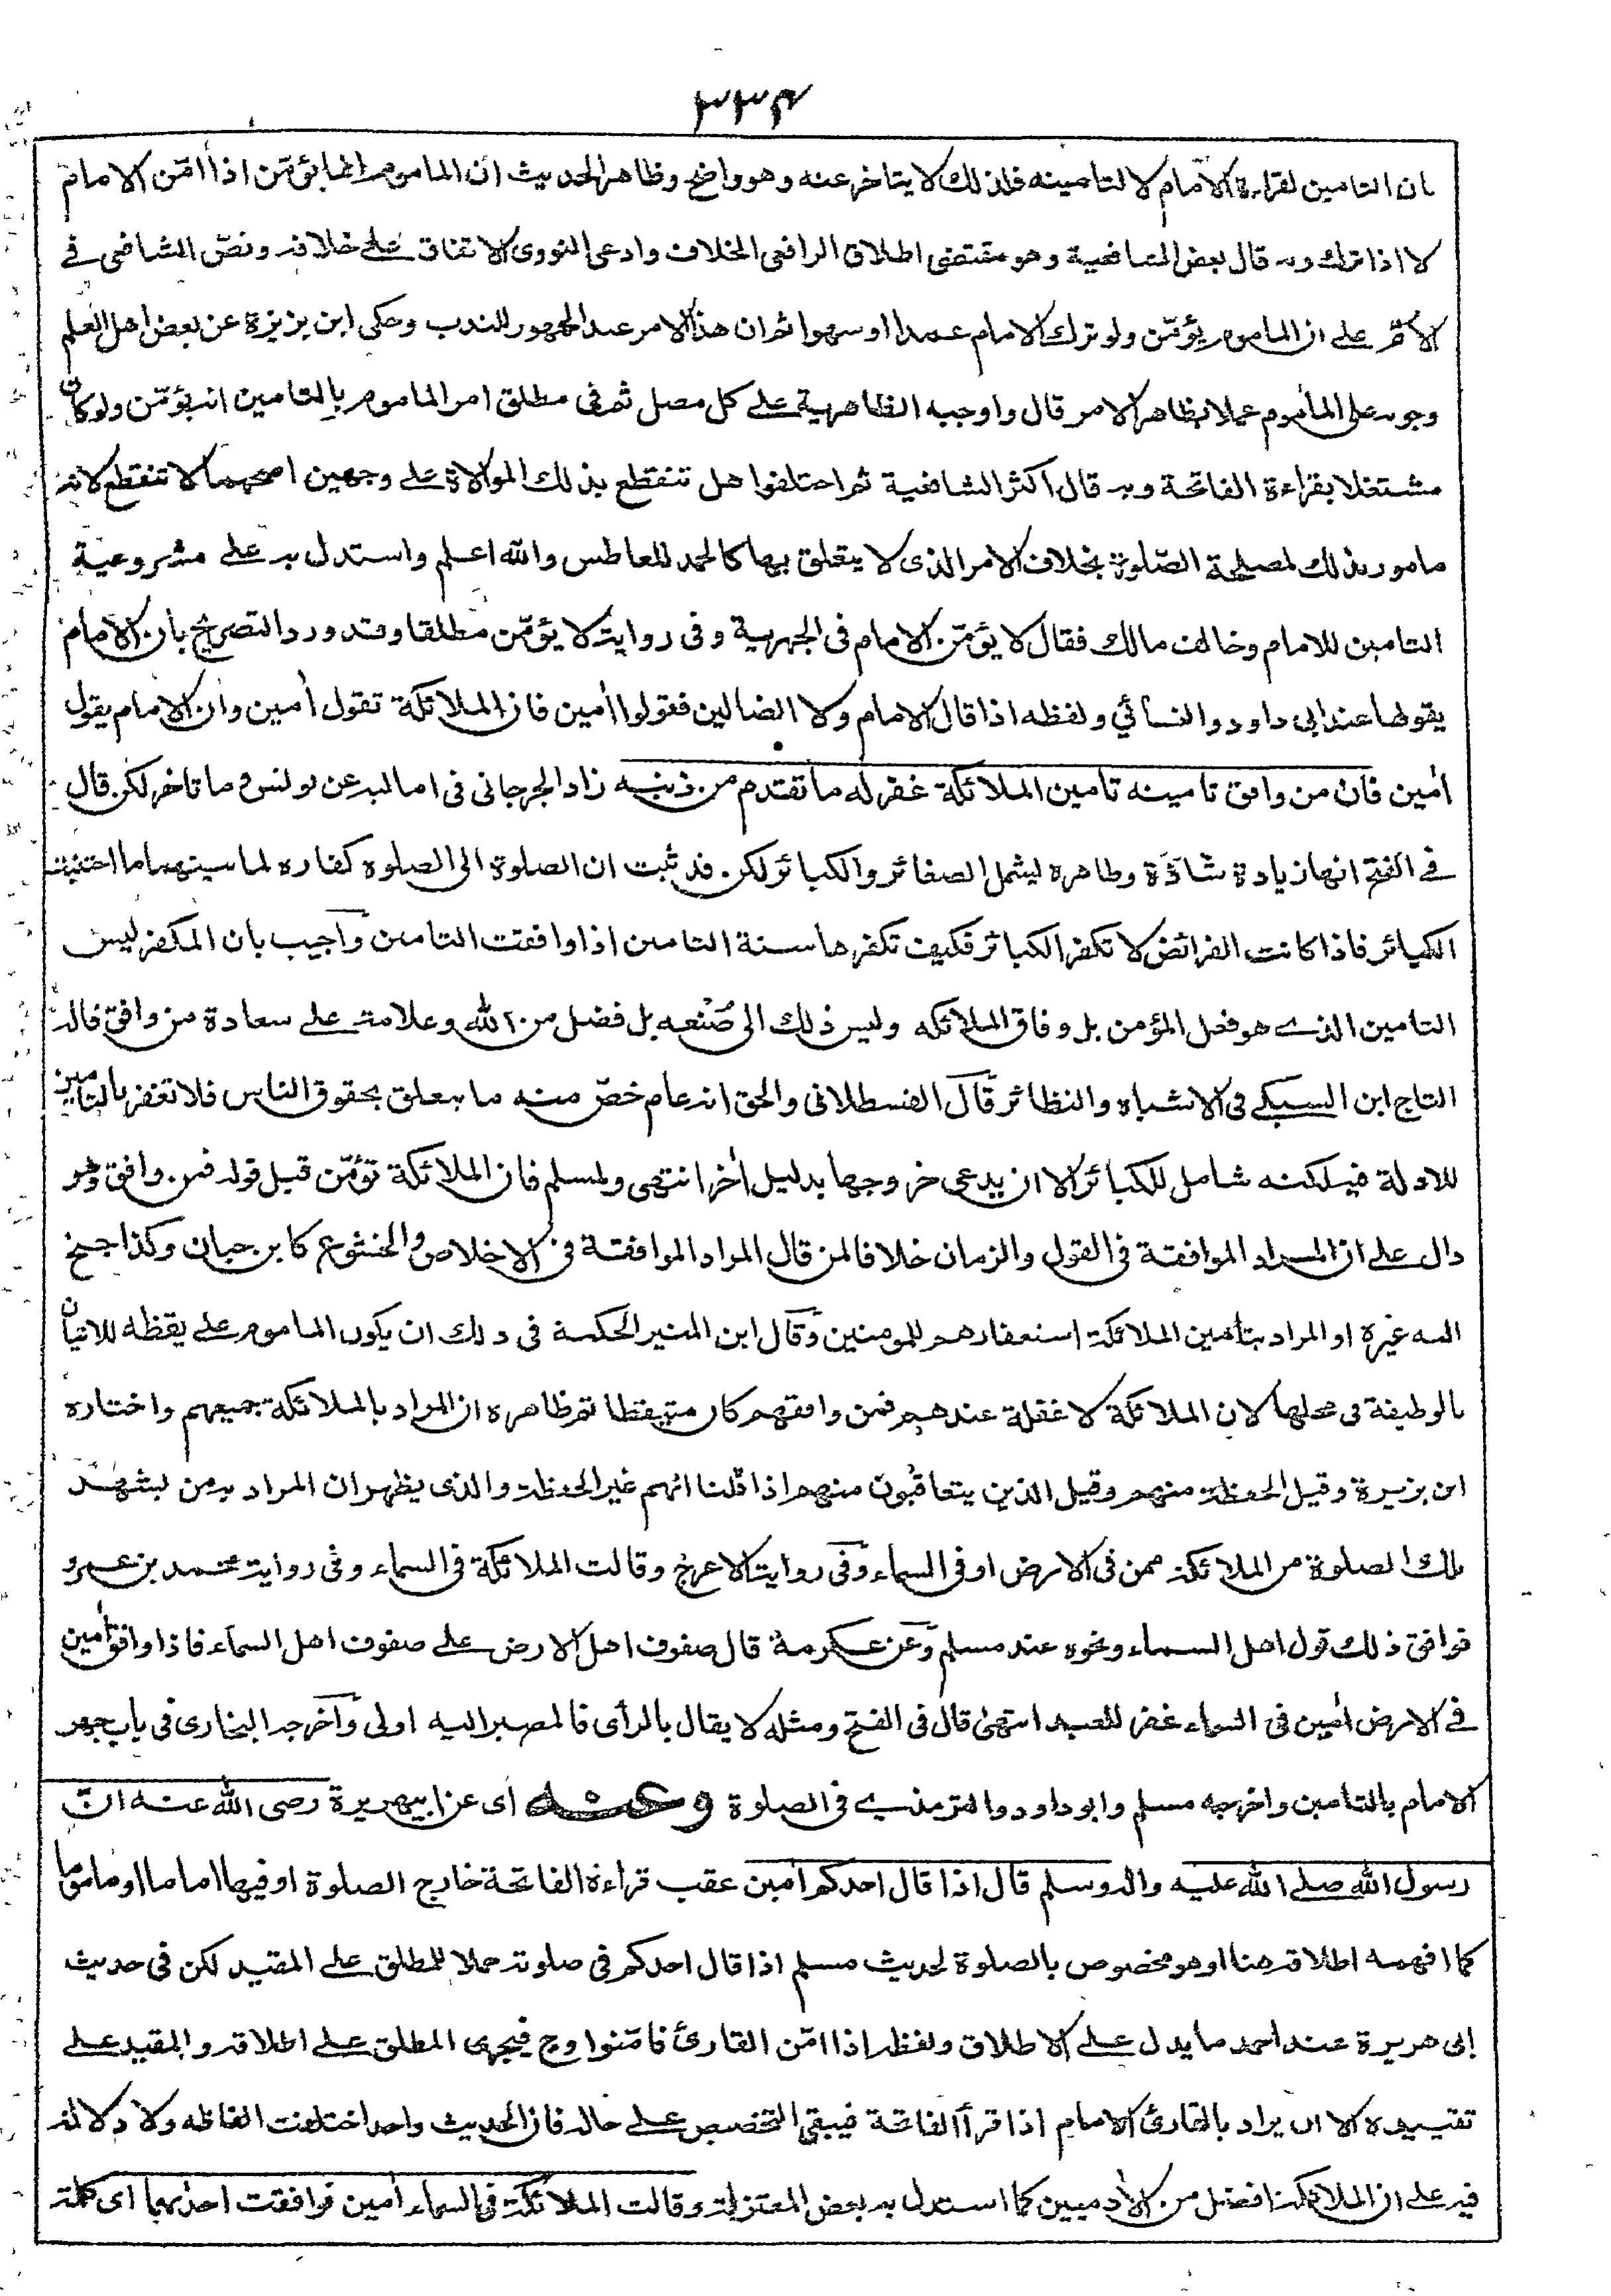 ٣٣٤
بان التامين لقراءة الامام لا لتامينه فلذلك لا يتاخر عنه وهو واضح وظاهر الحديث ان الماموم انما يؤمّن اذا امّن الامام
لا اذا ترك وبه قال بعض الشافعية وهو مقتضى اطلاق الرافعى الخلاف وادعى النووى الاتفاق على خلافه ونصّ الشافعى فى
الأمّ على ان الماموم يؤمّن ولو ترك الامام عمدا او سهوا ثم ان هذا الامر عند الجمهور للندب وحكى ابن بزيزة عن بعض اهل العلم
وجوبه على المأموم عملا بظاهر الامر قال واوجبه الظاهرية على كل مصل ثم فى مطلق امر الماموم بالتامين انه يؤمّن ولو كان
مشتغلا بقراءة الفاتحة وبه قال اكثر الشافعية ثم اختلفوا هل تنقطع بذلك الموالاة على وجهين اصحهما لا تنقطع لانه
مامور بذلك لمصلحة الصّلوة بخلاف الامر الذى لا يتعلق بها كالحمد للعاطس والله اعلم واستدل به على مشروعية
التامين للامام وخالف مالك فقال لا يؤمّن الامام فى الجهرية وفى رواية لا يؤمّن مطلقا وقد ورد التصريح بان الامام
يقولها عند ابى داود والنسائي ولفظه اذا قال الامام ولا الضالين فقولوا أمين فان الملائكة تقول أمين وان الامام يقول
أمين فان من وافق تامينه تامين الملائكة غفر له ما تقدم من ذنبه زاد الجرجانى فى اماليه عن يونس وما تاخر لكن قال
فى الفتح انها زيادة شاذّة وظاهره ليشمل الصغائر والكبائر لكن قد ثبت ان الصلوة الى الصلوة كفارة لما بينهما ما اجتنبت
الكبائر فاذا كانت الفرائض لا تكفر الكبائر فكيف تكفرها سنة التامين اذا وافقت التامين وأجيب بان المكفر ليس
التامين الذى هو فعل المؤمن بل وفاق الملائكه وليس ذلك الى صُنْعه بل فضل من الله وعلامة على سعادة من وافق قاله
التاج ابن السبكى فى الاشباه والنظائر قال القسطلانى والحق انه عام خصّ منه ما يتعلق بحقوق الناس فلا تغفر بالتامين
للادلة فيه لكنه شامل للكبائر الا ان يدعى خروجها بدليل أخر انتهى ولمسلم فان الملائكة تؤمّن قبل قوله فمن وافق وهو
دال على ان المراد الموافقة فى القول والزمان خلافا لمن قال المراد الموافقة فى الاخلاص والخشوع كابن حبان وكذا جنح
اليه غيره او المراد بتأمين الملائكة استغفارهم للمومنين وقال ابن المنير الحكمة فى ذلك ان يكون الماموم على يقظه للاتيان
بالوظيفة فى محلها لان الملائكة لا غفلة عندهم فمن وافقهم كان متيقظا ثم ظاهره ان المراد بالملائكة جميعهم واختاره
ابن بزيزة وقيل الحفظة منهم وقيل الذين يتعاقبون منهم اذا قلنا انهم غير الحفظة والذى يظهر ان المراد بهم من يشهد
تلك الصلوة من الملائكة ممن فى الارض او فى السماء وفى رواية الاعرج وقالت الملائكة فى السماء وفى رواية محمد بن عمرو
فوافق ذلك قول اهل السماء ونحوه عند مسلم وعن عكرمة قال صفوف اهل الارض على صفوف اهل السماء فاذا وافق أمين
فى الارض أمين فى السماء غفر للعبد انتهى قال فى الفتح ومثله لا يقال بالرأى فالمصير اليه اولى وأخرجه البخارى فى باب جهر
الامام بالتامين واخرجه مسلم وابو داود والترمذى فى الصلوة وعنه اى عن ابى هريرة رضى الله عنه انّ
رسول الله صلى الله عليه واله وسلم قال اذا قال احدكم أمين عقب قراءة الفاتحة خارج الصلوة او فيها اماما او ماموما
كما افهمه اطلاقه هنا او هو مخصوص بالصلوة لحديث مسلم اذا قال احدكم فى صلوته حملا للمطلق على المقيد لكن فى حديث
ابى هريرة عند احمد ما يدل على الاطلاق ولفظه اذا امّن القارئ فامّنوا وح فيجرى المطلق على اطلاقه والمقيد على
تقييده الا ان يراد بالقارئ الامام اذا قرأ الفاتحة فيبقى التخصيص على حاله فان الحديث واحد اختلفت الفاظه ولا دلالة
فيه على ان الملائكة افضل من الأدميين كما استدل به بعض المعتزلة وقالت الملائكة فى السماء أمين فوافقت احدٰهما اى كلمة